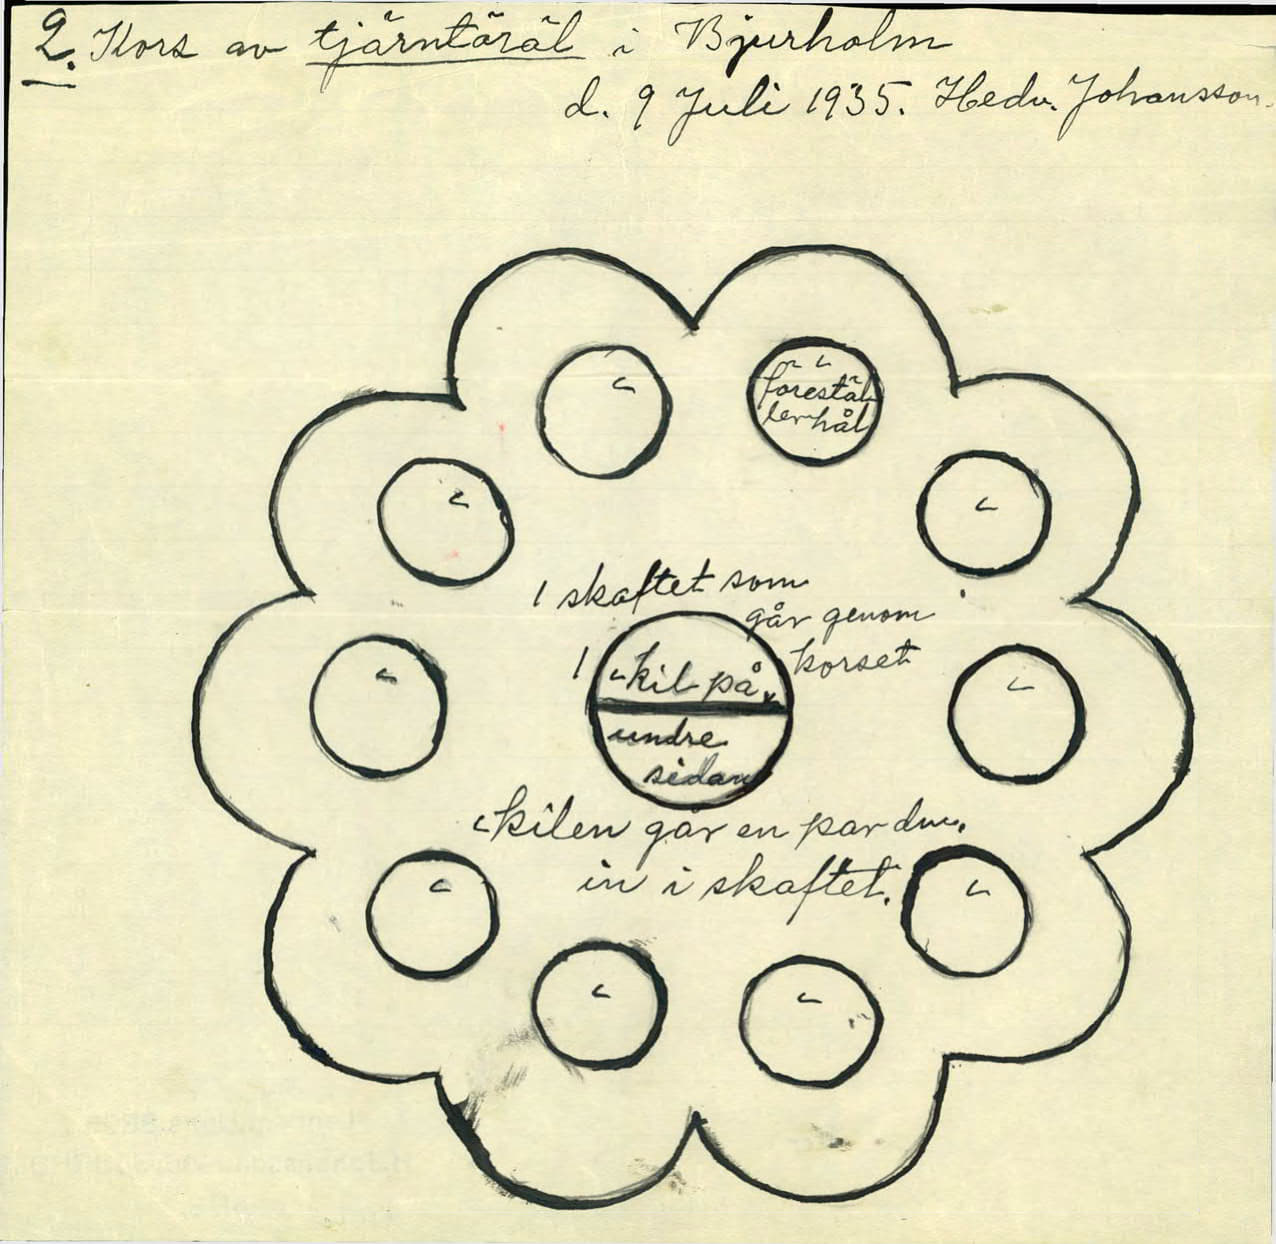 2. Kors av tjärntöräl i Bjurholm
d. 9 Juli 1935. Hedv. Johansson.
förestäl
ler hål
1 skaftet som
går genom
korset
1 kil på
undre
sidan
kilen går en par dm.
in i skaftet.